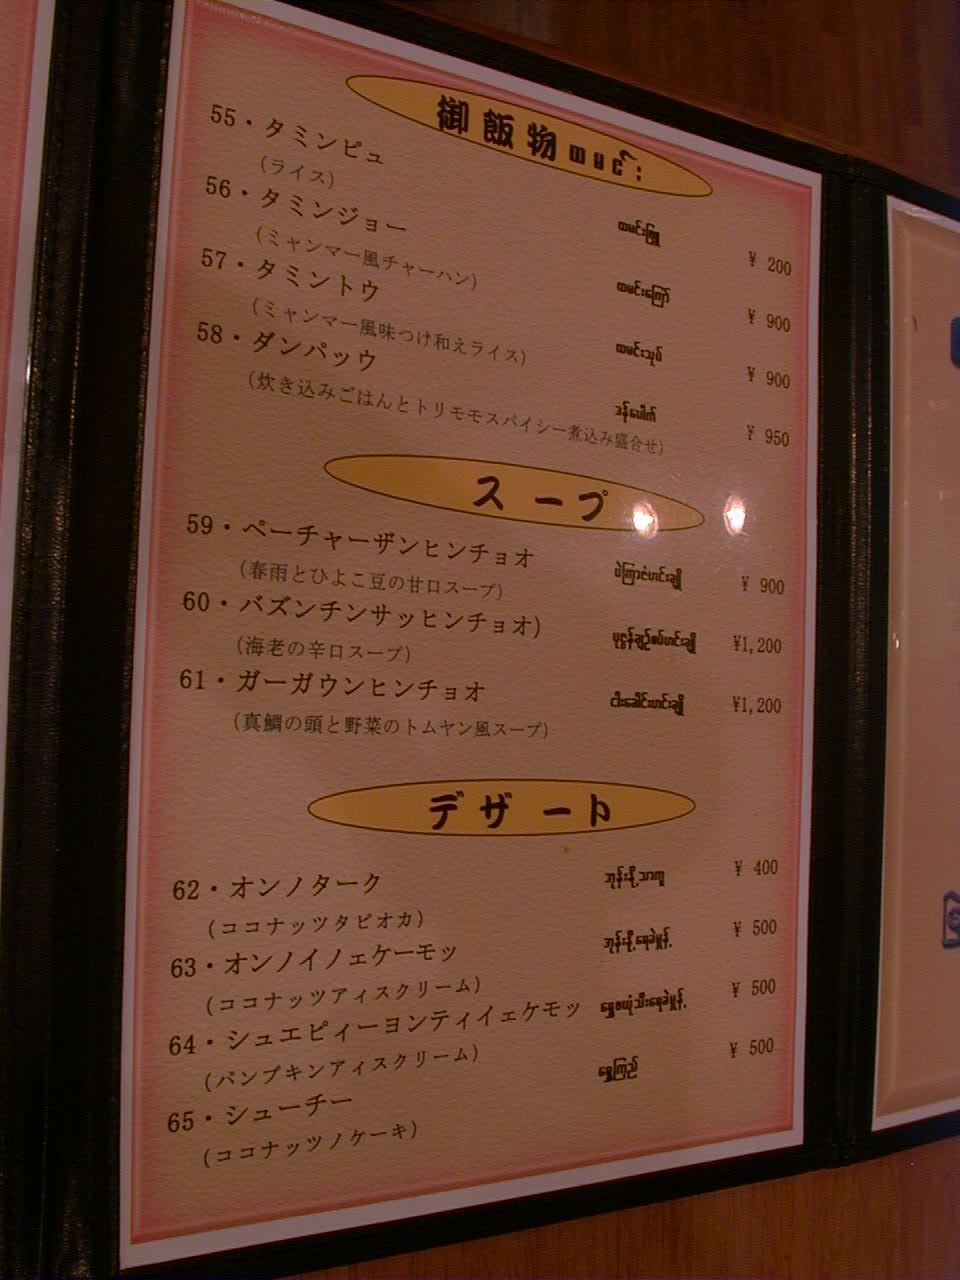 御飯物 ထမင်း
55・タミンピュ ထမင်းဖြူ ¥ 200
(ライス)
56・タミンジョー ထမင်းကြော် ¥ 900
(ミャンマー風チャーハン)
57・タミントウ ထမင်းသုပ် ¥ 900
(ミャンマー風味つけ和えライス)
58・ダンパッウ ဒန်ပေါက် ¥ 950
(炊き込みごはんとトリモモスパイシー煮込み盛合せ)
スープ
59・ペーチャーザンヒンチョオ ပဲကြာဇံဟင်းချို ¥ 900
(春雨とひよこ豆の甘口スープ)
60・バズンチンサッヒンチョオ) ပုဇွန်ချဉ်စပ်ဟင်းချို ¥1,200
(海老の辛口スープ)
61・ガーガウンヒンチョオ ငါးခေါင်းဟင်းချို ¥1,200
(真鯛の頭と野菜のトムヤン風スープ)
デザート
62・オンノターク အုန်းနို့သာကူ ¥ 400
(ココナッツタピオカ)
63・オンノイノェケーモッ အုန်းနို့ရေခဲမုန့် ¥ 500
(ココナッツアィスクリーム)
64・シュエピィーヨンティイェケモッ ရွှေဖယုံသီးရေခဲမုန့် ¥ 500
(パンプキンアィスクリーム)
65・シューチー ရွှေကြည် ¥ 500
(ココナッツノケーキ)